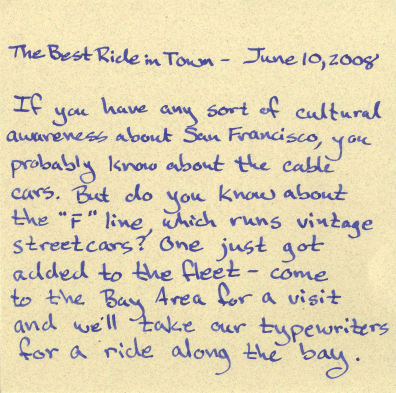 The Best Ride in Town - June 10, 2008
If you have any sort of cultural
awareness about San Francisco, you
probably know about the cable
cars. But do you know about
the "F" line, which runs vintage
streetcars? One just got
added to the fleet - come
to the Bay Area for a visit
and we'll take our typewriters
for a ride along the bay.